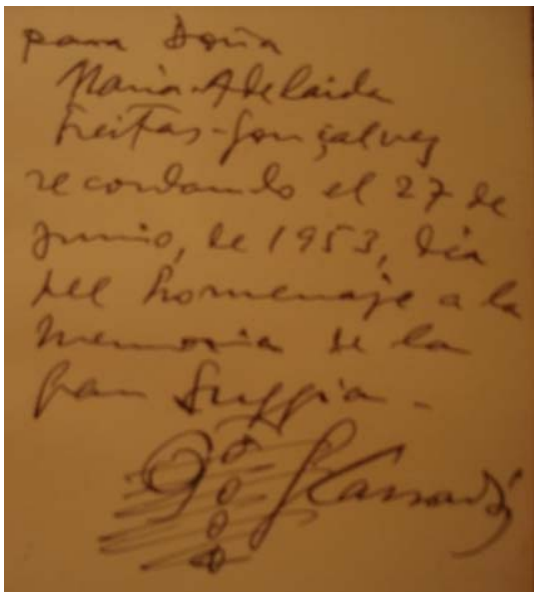 para Doña
Maria-Adelaida
Freitas-Gonçalves
recordando el 27 de
junio, de 1953, dia
del homenaje a la
memoria de la
gran Suggia -
G Cassadó